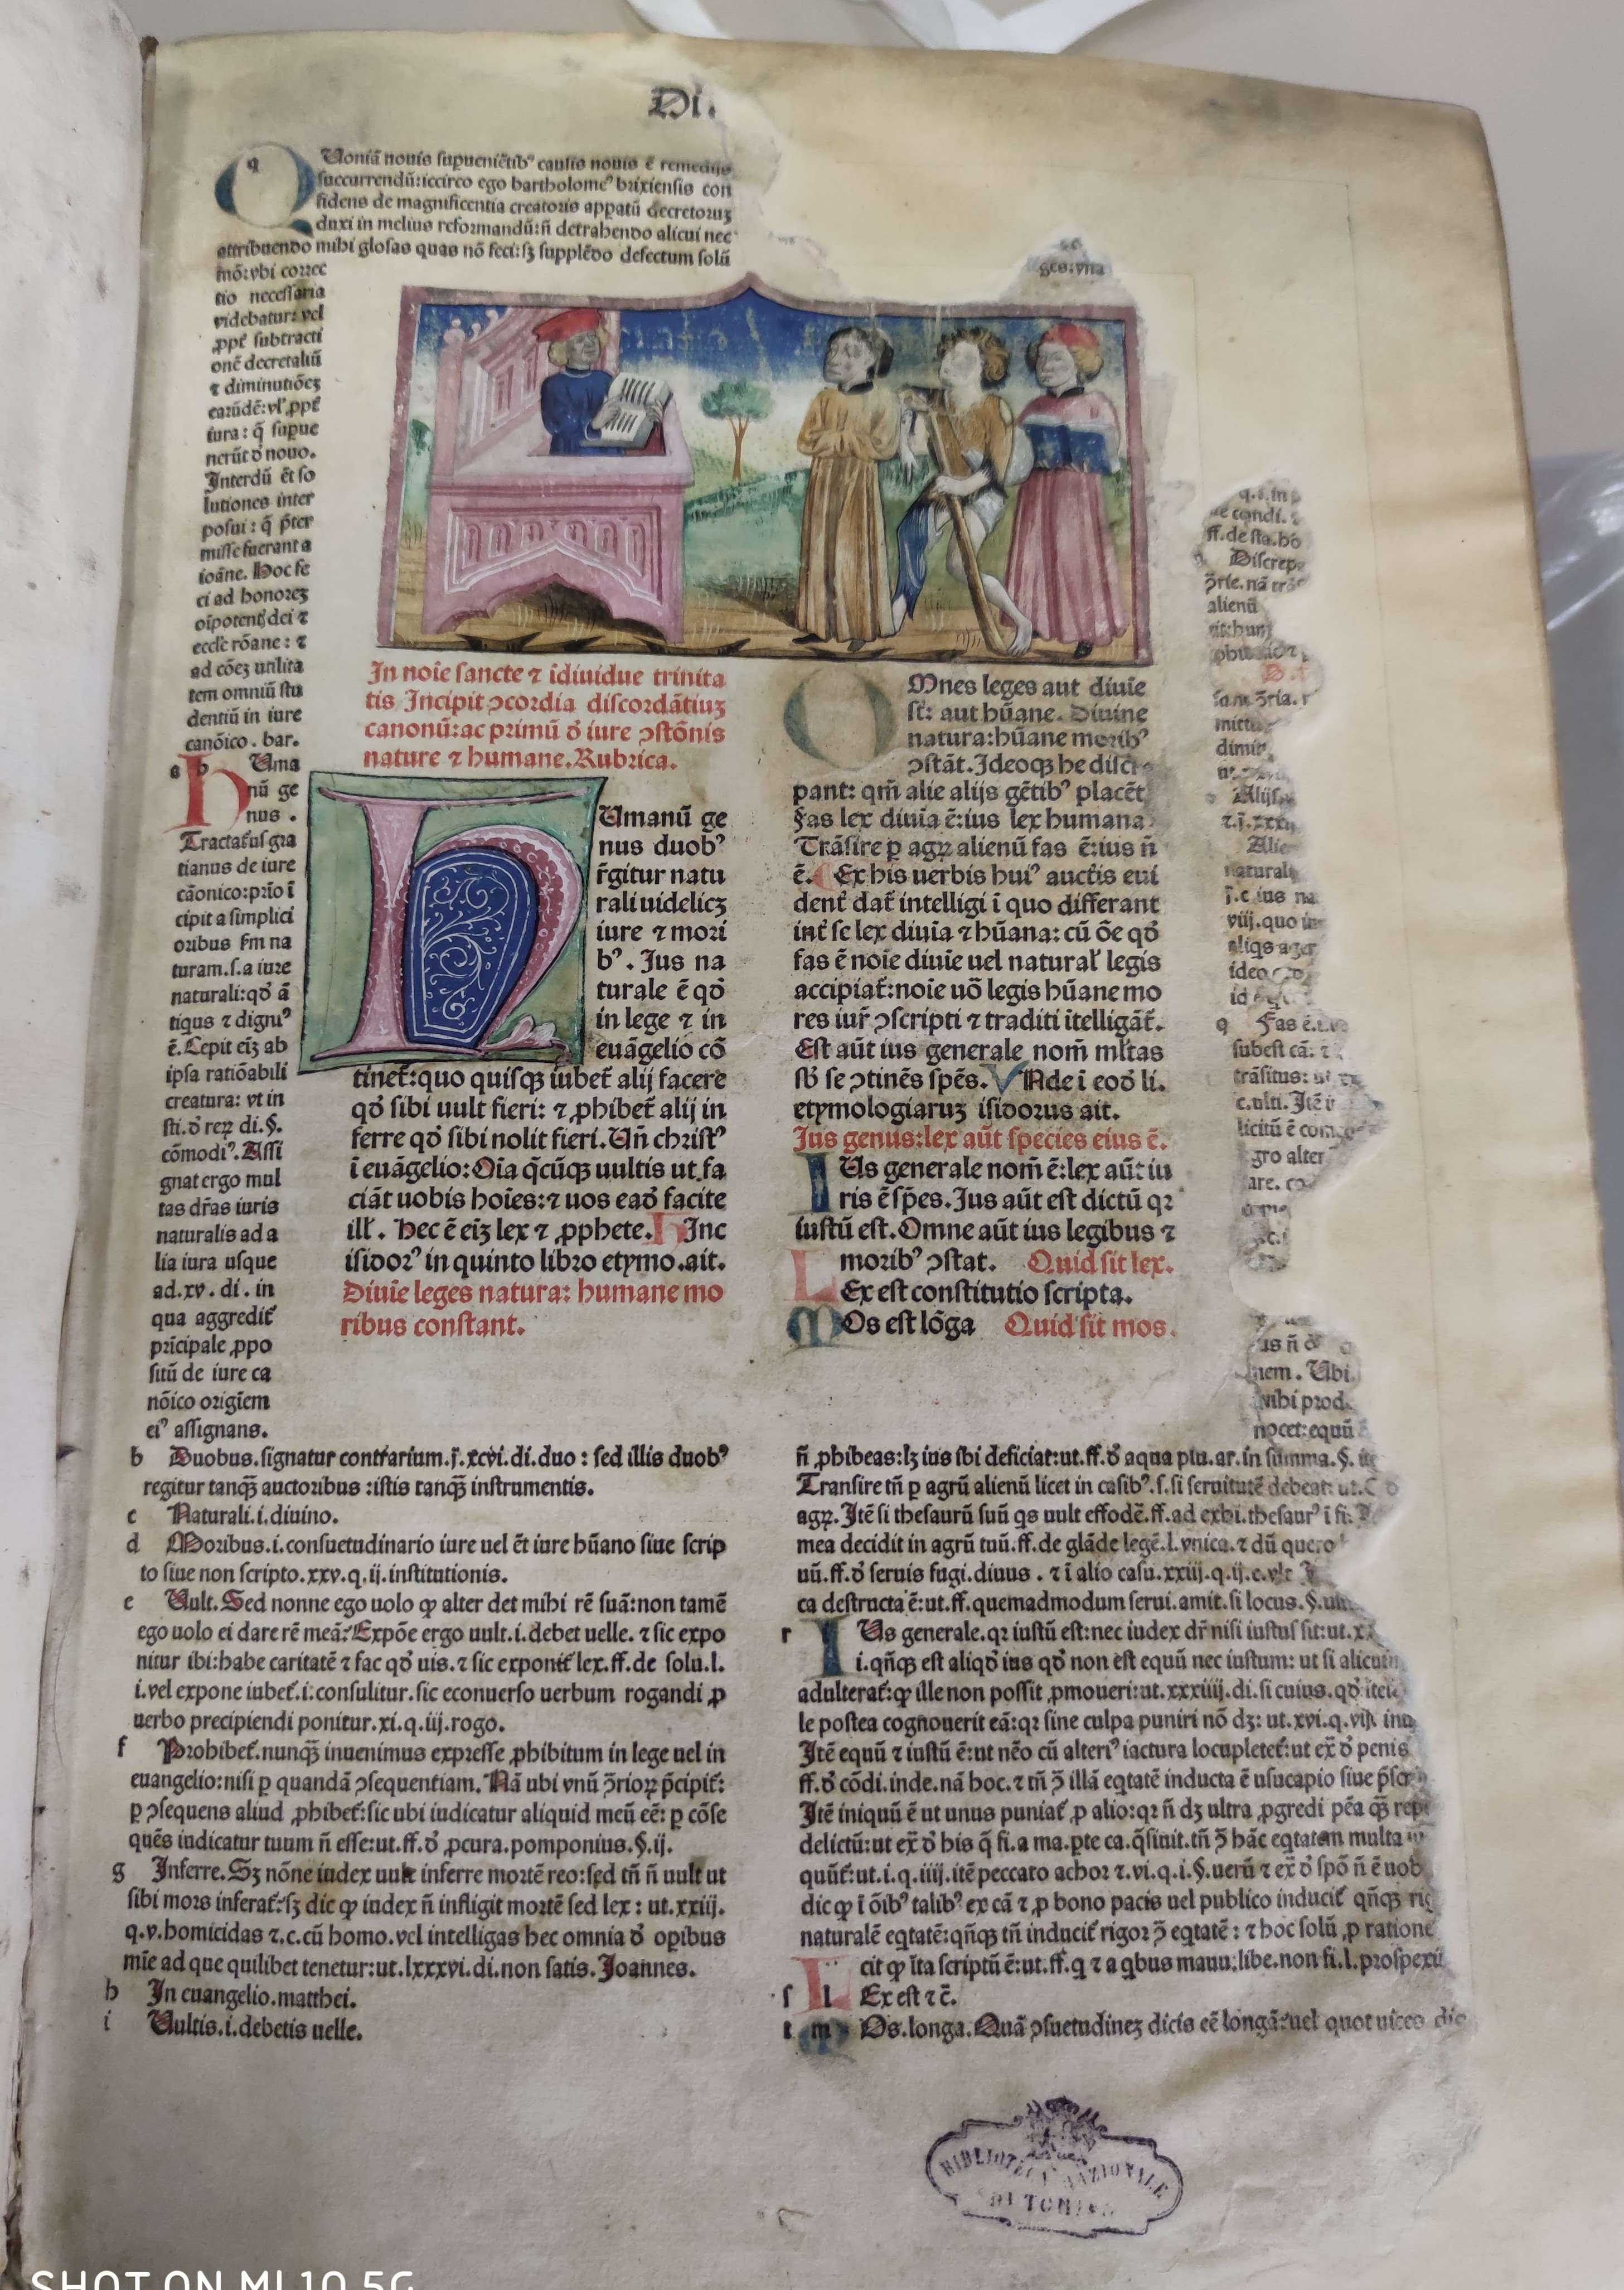 Di.
q
Uoniā nouis supueniētibꝰ causis nouis ē remedijs
succurrendū:iccirco ego bartholomeꝰ brixiensis con
fidens de magnificentia creatoris appatū decretoruʒ
duxi in melius reformandū:ñ detrahendo alicui nec
attribuendo mihi glosas quas nō feci:sʒ supplēdo defectum solū
mō:vbi correc
tio necessaria
videbatur: vel
ꝓpt̄ subtracti
onē decretaliū
⁊ diminutiōeʒ
earūdē:vl' ꝓpt̄
iura: q̄ supue
nerūt ꝺ̓ nouo.
Interdū ēt so
lutiones inter
posui: q̄ p̄ter
misse fuerant a
ioāne. Hoc fe
ci ad honoreʒ
oīpotent̄ dei ⁊
eccl'e rōane: ⁊
ad cōeʒ utilita
tem omniū stu
dentiū in iure
canōico. bar.
a b Uma
nū ge
nus.
Tractat̄us gra
tianus de iure
cāonico:prīo ī
cipit a simplici
oribus s̄m na
turam.s.a iure
naturali:qꝺ̓ ā
tiqus ⁊ digniꝰ
ē. Cepit eīʒ ab
ipsa ratiōabili
creatura: vt in
sti.ꝺ̓ reꝝ di.§.
cōmodiꝰ. Assi
gnat ergo mul
tas dr̄as iuris
naturalis ad a
lia iura usque
ad.xv. di. in
qua aggredit̄
prīcipale ꝓpo
sitū de iure ca
nōico originē
eiꝰ assignans.
In noīe sancte ⁊ īdiuidue trinita
tis Incipit ↄcordia discordātiuʒ
canonū:ac primū ꝺ̓ iure ↄstōnis
nature ⁊ humane.Rubrica.
Umanū ge
nus duobꝰ
r̄gitur natu
rali uidelicʒ
iure ⁊ mori
bꝰ. Jus na
turale ē qꝺ̓
in lege ⁊ in
euāgelio cō
tinet̄:quo quisqʒ iubet̄ alij facere
qꝺ̓ sibi uult fieri: ⁊ ꝓhibet̄ alij in
ferre qꝺ̓ sibi nolit fieri. Uñ christꝰ
ī euāgelio:Oīa q̄cūqʒ uultis ut fa
ciāt uobis hoīes:⁊ uos eaꝺ̓ facite
ill'. Hec ē eīʒ lex ⁊ ꝓphete. Hinc
isidorꝰ in quinto libro etymo.ait.
Diuīe leges natura: humane mo
ribus constant.
Omnes leges aut diuīe
st̄: aut hūane. Diuine
natura:hūane moribꝰ
ↄstāt. Ideoqʒ he discre
pant: qm̄ alie alijs gētibꝰ placēt
Fas lex diuīa ē:ius lex humana
Trāsire ꝑ agꝝ alienū fas ē:ius ñ
ē. Ex his uerbis huiꝰ auct̄is eui
dent̄ dat̄ intelligi ī quo differant
int̄ se lex diuīa ⁊ hūana: cū ōe qꝺ̓
fas ē noīe diuīe uel natural' legis
accipiat̄:noīe uō legis hūane mo
res iur̄ ↄscripti ⁊ traditi ītelligāt̄.
Est aūt ius generale nom̄ ml̄tas
sb̄ se ↄtinēs sp̄es. Unde ī eoꝺ̓ li.
etymologiaruʒ isidorus ait.
Jus genus:lex aūt species eius ē.
IUs generale nom̄ ē:lex aūt iu
ris ē sp̄es. Jus aūt est dictū qꝛ
iustū est. Omne aūt ius legibus ⁊
moribꝰ ↄstat. Quid sit lex.
LEx est constitutio scripta.
MOs est lōga Quid sit mos.
ges:vna
q.i. in
condi.
ff.de sta.ho
Discrep
alienū
mittu
Alijs
naturali
viij.quo
aliqs ager
ideo
q Fas ē.
subest cā: ⁊
trāsitus:
c.ulti. Itē
licitū ē
gro alter
us ñ
nem. Ubi
mihi prod
nocet:equū
b Duobus.signatur contrarium.j.xcvi.di.duo: sed illis duobꝰ
regitur tanqʒ̄ auctoribus:istis tanqʒ̄ instrumentis.
c Naturali.i.diuino.
d Moribus.i.consuetudinario iure uel ēt iure hūano siue scrip
to siue non scripto.xxv.q.ij.institutionis.
e Uult.Sed nonne ego uolo ꝙ alter det mihi rē suā:non tamē
ego uolo ei dare rē meā? Expōe ergo uult.i.debet uelle. ⁊ sic expo
nitur ibi:habe caritatē ⁊ fac qꝺ̓ uis.⁊ sic exponit̄ lex.ff.de solu.l.
i.vel expone iubet̄.i.consulitur.sic econuerso uerbum rogandi ꝓ
uerbo precipiendi ponitur.xi.q.iij.rogo.
f Prohibet̄.nunqʒ̄ inuenimus expresse ꝓhibitum in lege uel in
euangelio:nisi ꝑ quandā ↄsequentiam. Nā ubi vnū ↄ̄rioꝝ p̄cipit̄:
ꝑ ↄsequens aliud ꝓhibet̄:sic ubi iudicatur aliquid meū eē: ꝑ cōse
quēs iudicatur tuum ñ esse:ut.ff.ꝺ̓ ꝓcura.pomponius.§.ij.
g Inferre.Sʒ nōne iudex uult inferre mortē reo:sed tñ ñ uult ut
sibi mors inferat̄? sʒ dic ꝙ iudex ñ infligit mortē sed lex: ut.xxiij.
q.v.homicidas ⁊.c.cū homo.vel intelligas hec omnia ꝺ̓ opībus
mīe ad que quilibet tenetur:ut.lxxxvi.di.non satis.Joannes.
h In euangelio.matthei.
i Uultis.i.debetis uelle.
ñ ꝓhibeas:lʒ ius sibi deficiat:ut.ff.ꝺ̓ aqua plu.ar.in summa.§.
Transire tñ ꝑ agrū alienū licet in casibꝰ.s.si seruitutē debeat: ut.
agꝝ. Itē si thesaurū suū qs uult effodē.ff.ad exhi.thesaurꝰ
mea decidit in agrū tuū.ff.de glāde legē.l.vnica.⁊ dū quero
uū.ff.ꝺ̓ seruis fugi.diuus. ⁊ ī alio casu.xxiij.q.ij.c.vlt
ca destructa ē:ut.ff.quemadmodum serui.amit.si locus.§.
r IUs generale.qꝛ iustū est:nec iudex dr̄ nisi iustus sit:ut.
i.qñqʒ est aliqꝺ̓ ius qꝺ̓ non est equū nec iustum: ut si alicuiꝰ
adulterat̄:ꝙ ille non possit ꝓmoueri:ut.xxxiiij.di.si cuius.qꝺ̓
le postea cognouerit eā:qꝛ sine culpa puniri nō dʒ: ut.xvi.q.vij.
Itē equū ⁊ iustū ē:ut nēo cū alteriꝰ iactura locupletet̄:ut ex̄ ꝺ̓ penis
ff.ꝺ̓ cōdi.inde.nā hoc.⁊ tñ ↄ̄ illā eqtatē inducta ē usucapio siue
Itē iniquū ē ut unus puniat̄ ꝓ alio:qꝛ ñ dʒ ultra ꝓgredi pēa qʒ̄
delictū:ut ex̄ ꝺ̓ his q̄ fi.a ma.pte ca.q̄siuit.tñ ↄ̄ hāc eqtatem multa
quūt̄:ut.i.q.iiij.itē peccato achor ⁊.vi.q.i.§.uerū ⁊ ex̄ ꝺ̓ spō ñ ē
dic ꝙ ī ōibꝰ talibꝰ ex cā ⁊ ꝓ bono pacis uel publico inducit̄ qñqʒ
naturalē eqtatē:qñqʒ tñ inducit̄ rigor ↄ̄ eqtatē: ⁊ hoc solū ꝓ ratione
cit ꝙ īta scriptū ē:ut.ff.q ⁊ a qbus manu.libe.non fi.l.prospexit
s l Ex est ⁊c̄.
t m Os.longa.Quā ↄsuetudineʒ dicis eē longā? uel quot uices
BIBLIOTECA NAZIONALE
DI TORINO
SHOT ON MI 10 5G